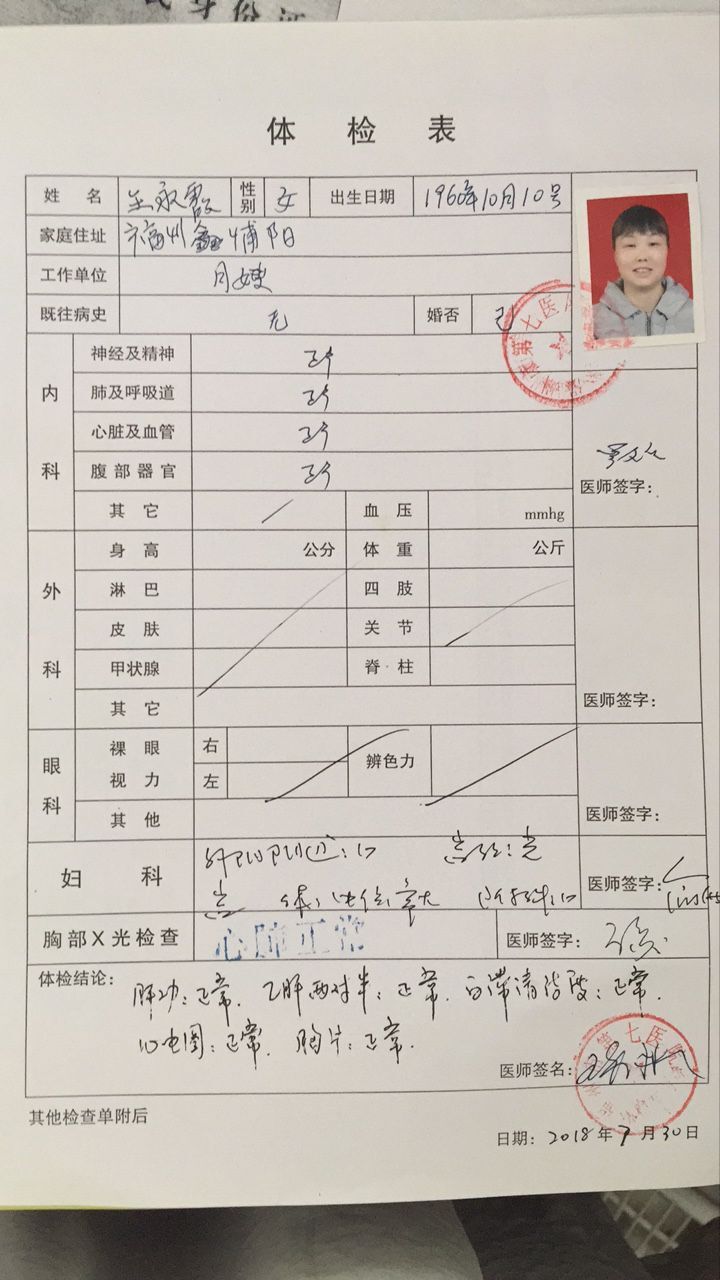 体 检 表
姓 名 王永霞 性别 女 出生日期 1960年10月10号
家庭住址 福州鑫埔阳
工作单位 月嫂
既往病史 无 婚否 已
内科 神经及精神
肺及呼吸道
心脏及血管
腹部器官
医师签字：
其 它 血 压 mmhg
外科 身 高 公分 体 重 公斤
淋 巴 四 肢
皮 肤 关 节
甲状腺 脊 柱
其 它 医师签字：
眼科 裸眼视力 右 左 辨色力
其 他 医师签字：
妇 科 医师签字：
胸部X光检查 心肺正常 医师签字：
体检结论： 肝功：正常. 乙肝两对半：正常. 白带清洁度：正常.
心电图：正常. 胸片：正常.
第七医院
医师签名：
其他检查单附后
日期：2018年7月30日